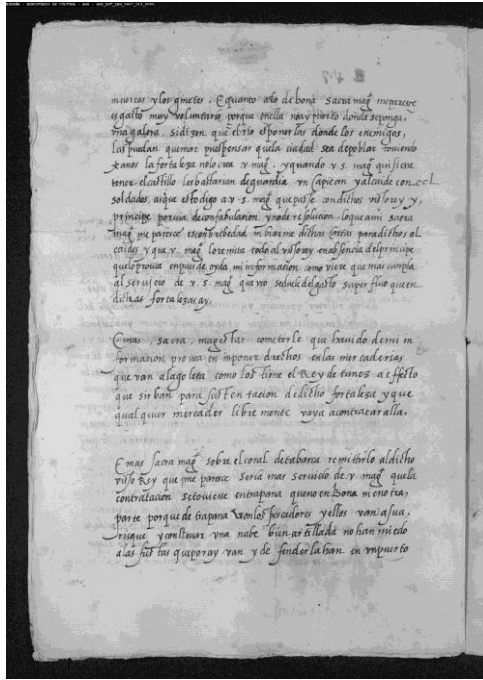 ESPAÑA - MINISTERIO DE CULTURA - AGS
muertos y los ginetes. E quanto a lo de bona sacra magd me paresçe
es gasto muy voluntario porque en ella no ay puerto donde se ponga,
vna galera, si dizen que el rio es poner las donde los enemigos,
las puedan quemar pues pensar que la ciudad sea de poblar touiendo
la fortaleza no lo crea v. magd. y quando v. s. magd quisiesse
tener el castillo le bastarian de guardia vn capitan y alcaide con
soldados, asi que esto digo a v. s. magd que passe con dichos visorey y,
principe por via de confabulacion y no de resolucion, lo que a mi sacra
magd me paresçe es con brebedad mbiarme dichas cartas para dichos al
caides y que v. magd lo remita todo al visorey en absencia del principe
que lo prouea en pues de oyda, mi informacion, como viere que mas cumpla
al seruicio de v. s. magd que yo se dudo del gasto superfluo que en
dichas fortalezas ay,
E mas, sacra, magestat cometerle que hauido de mi in
formacion prouea en inponer drechos en las mercaderias
que van a la goleta como los tiene el Rey de tunez a effecto
que sirban para sustentacion de dicha fortaleza y que
qual quier mercader libremente vaya a contractar alla,
E mas sacra magd sobre el coral de tabarca remitirlo al dicho
viso Rey que me parece seria mas seruicio de v. magd que la
contratacion se touiesse en trapana que no en Bona ni en otra,
parte porque de trapana son los pescadores y ellos van a sua,
risque y con lleuar vna nabe bien artillada no han miedo
a las fustas que por ay van y defender la han en vn puerto